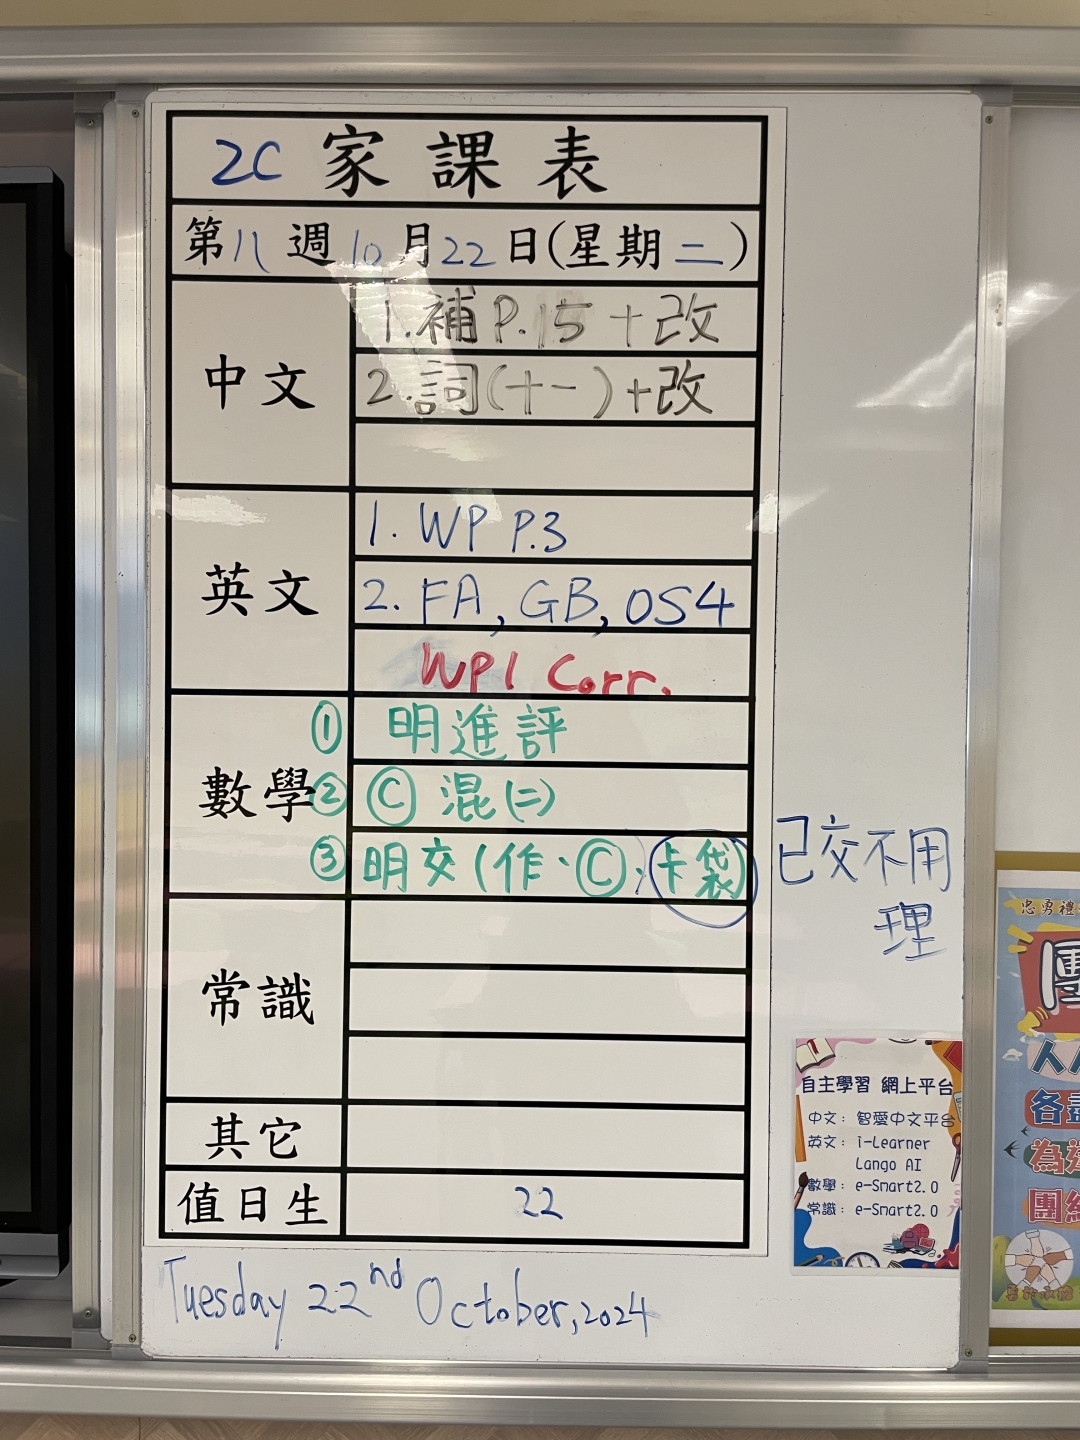 2C 家課表
第八週10月22日(星期二)
中文
1.補P.15+改
2.詞(十一)+改
英文
1. WP P.3
2. FA, GB, OS4
WP1 Corr.
數學
① 明進評
② Ⓒ 混(二)
③ 明交(作、Ⓒ、卡袋)
已交不用
理
常識
其它
值日生
22
Tuesday 22nd October, 2024
自主學習 網上平台
中文: 智愛中文平台
英文: i-Learner
Lango AI
數學: e-Smart2.0
常識: e-Smart2.0
忠勇禮
團
人人
各盡
為
團結